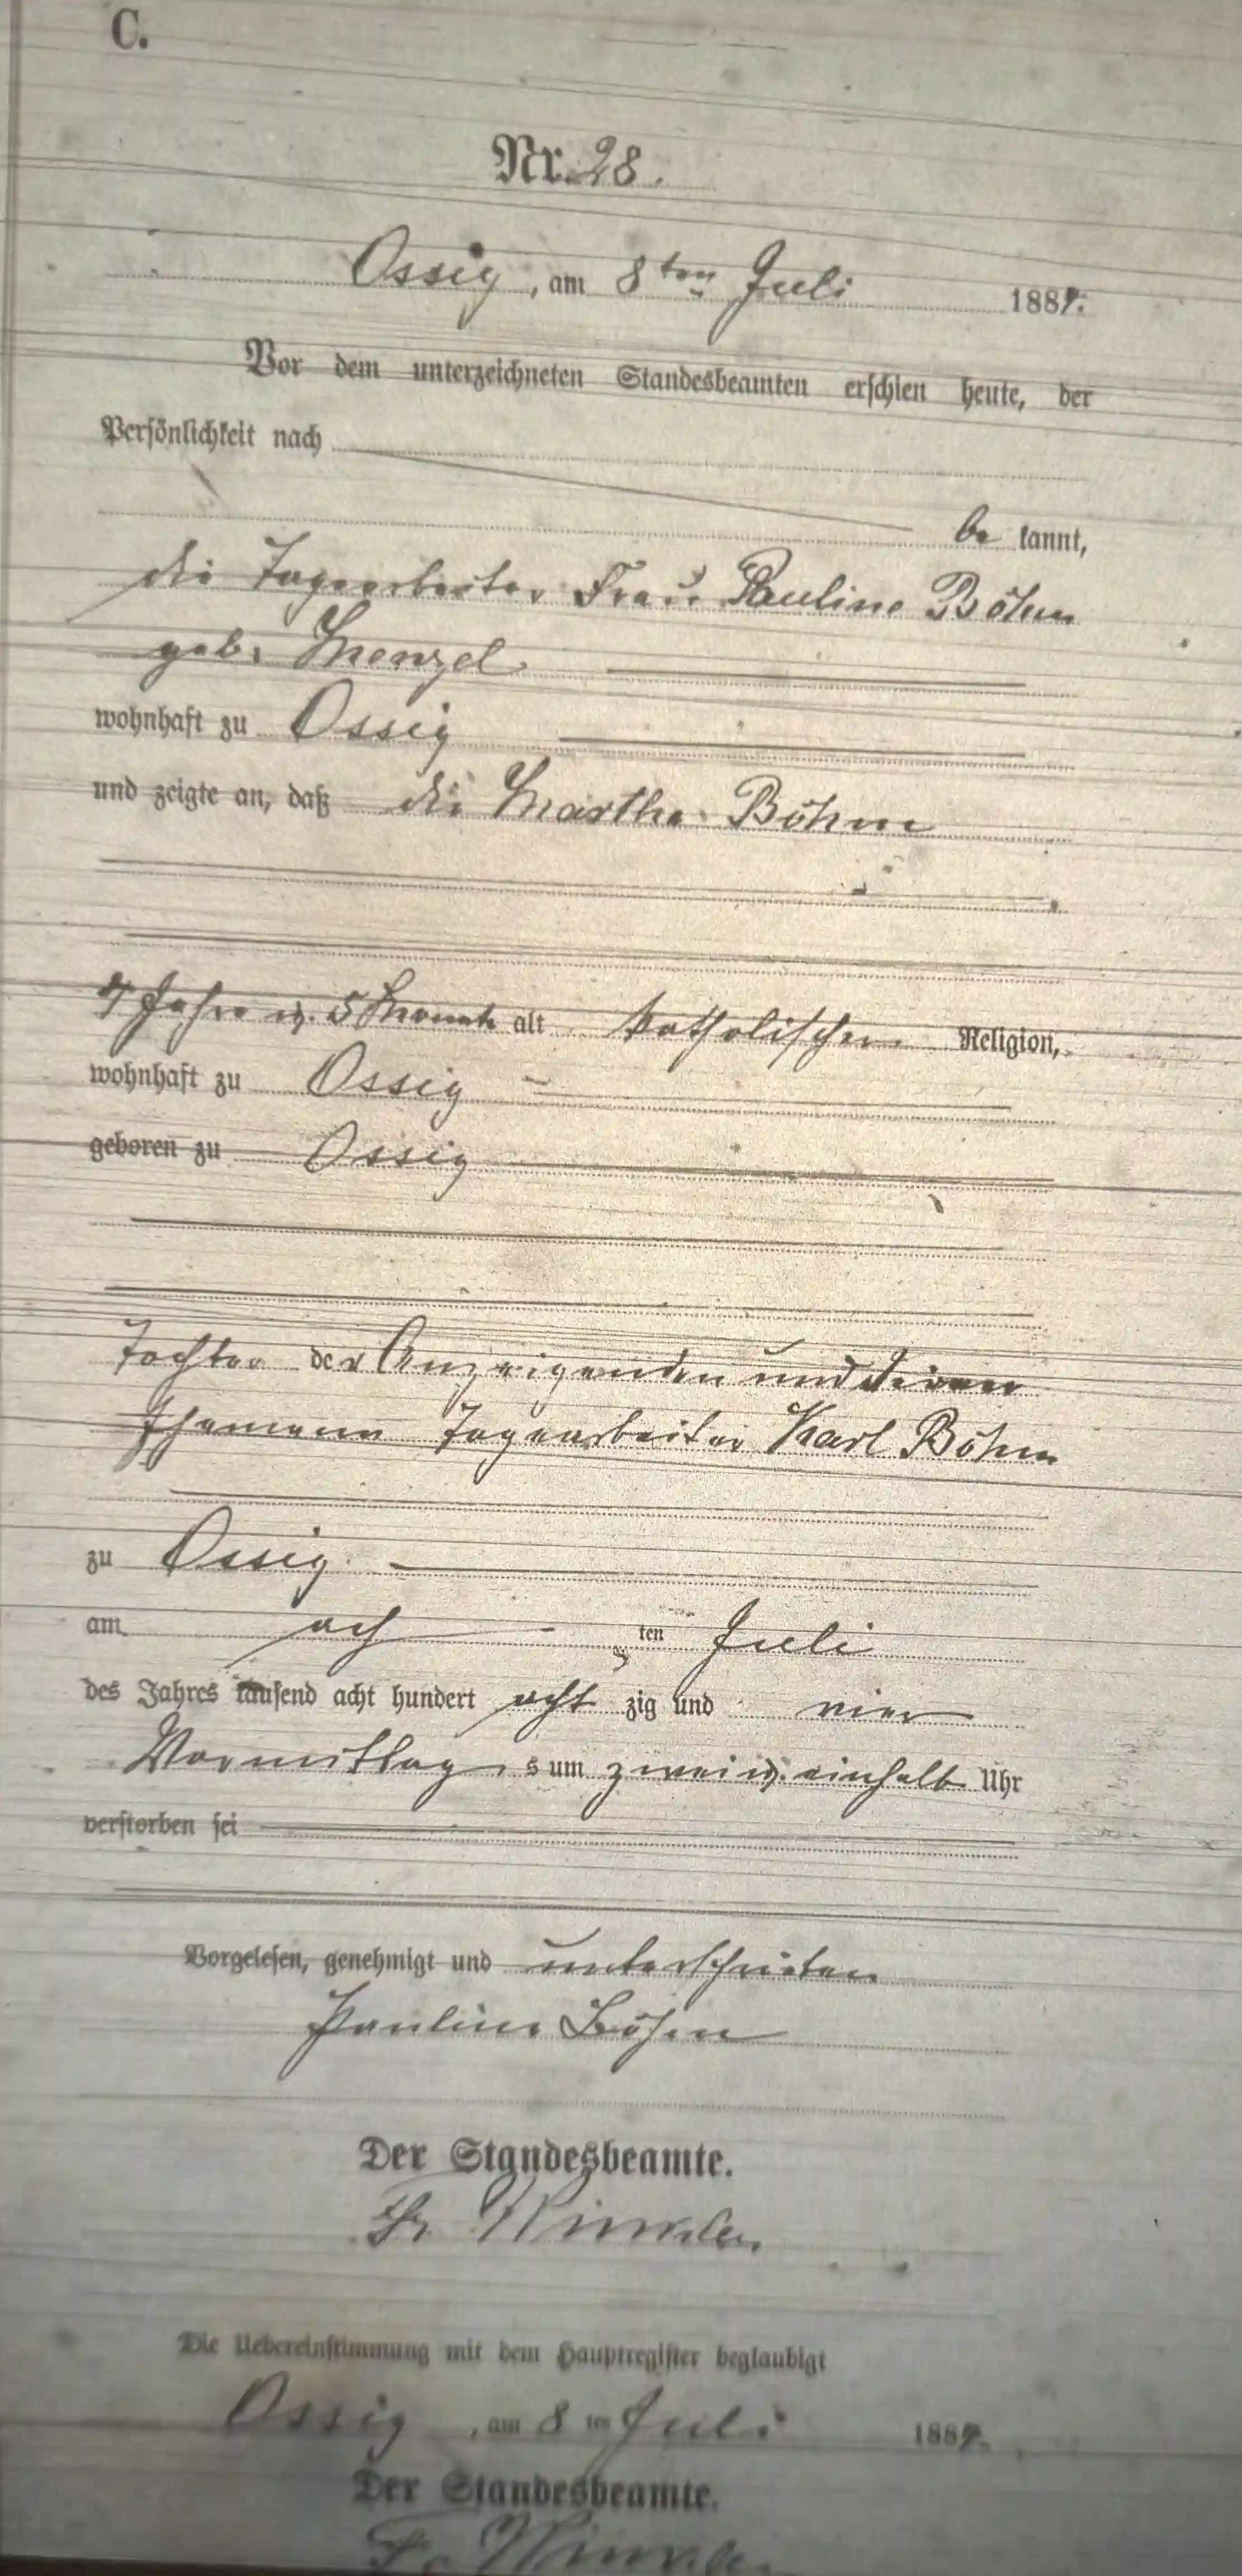 C.
Nr. 28.
Ossig, am 8ten Juli 1884.
Vor dem unterzeichneten Standesbeamten erschien heute, der
Persönlichkeit nach
be kannt,
die Tagearbeiter Frau Pauline Böhm
geb. Menzel
wohnhaft zu Ossig
und zeigte an, daß die Martha Böhm
4 Jahre u. 5 Monate alt katholischer Religion,
wohnhaft zu Ossig
geboren zu Ossig
Tochter der Anzeigenden und deren
Ehemann Tagearbeiter Karl Böhm
zu Ossig
am ach ten Juli
des Jahres tausend acht hundert acht zig und vier
Vormittag s um zwei u. einhalb Uhr
verstorben sei
Vorgelesen, genehmigt und unterschrieben
Pauline Böhm
Der Standesbeamte.
Fr Winkler
Die Uebereinstimmung mit dem Hauptregister beglaubigt
Ossig, am 8 ten Juli 1884.
Der Standesbeamte.
Fr Winkler